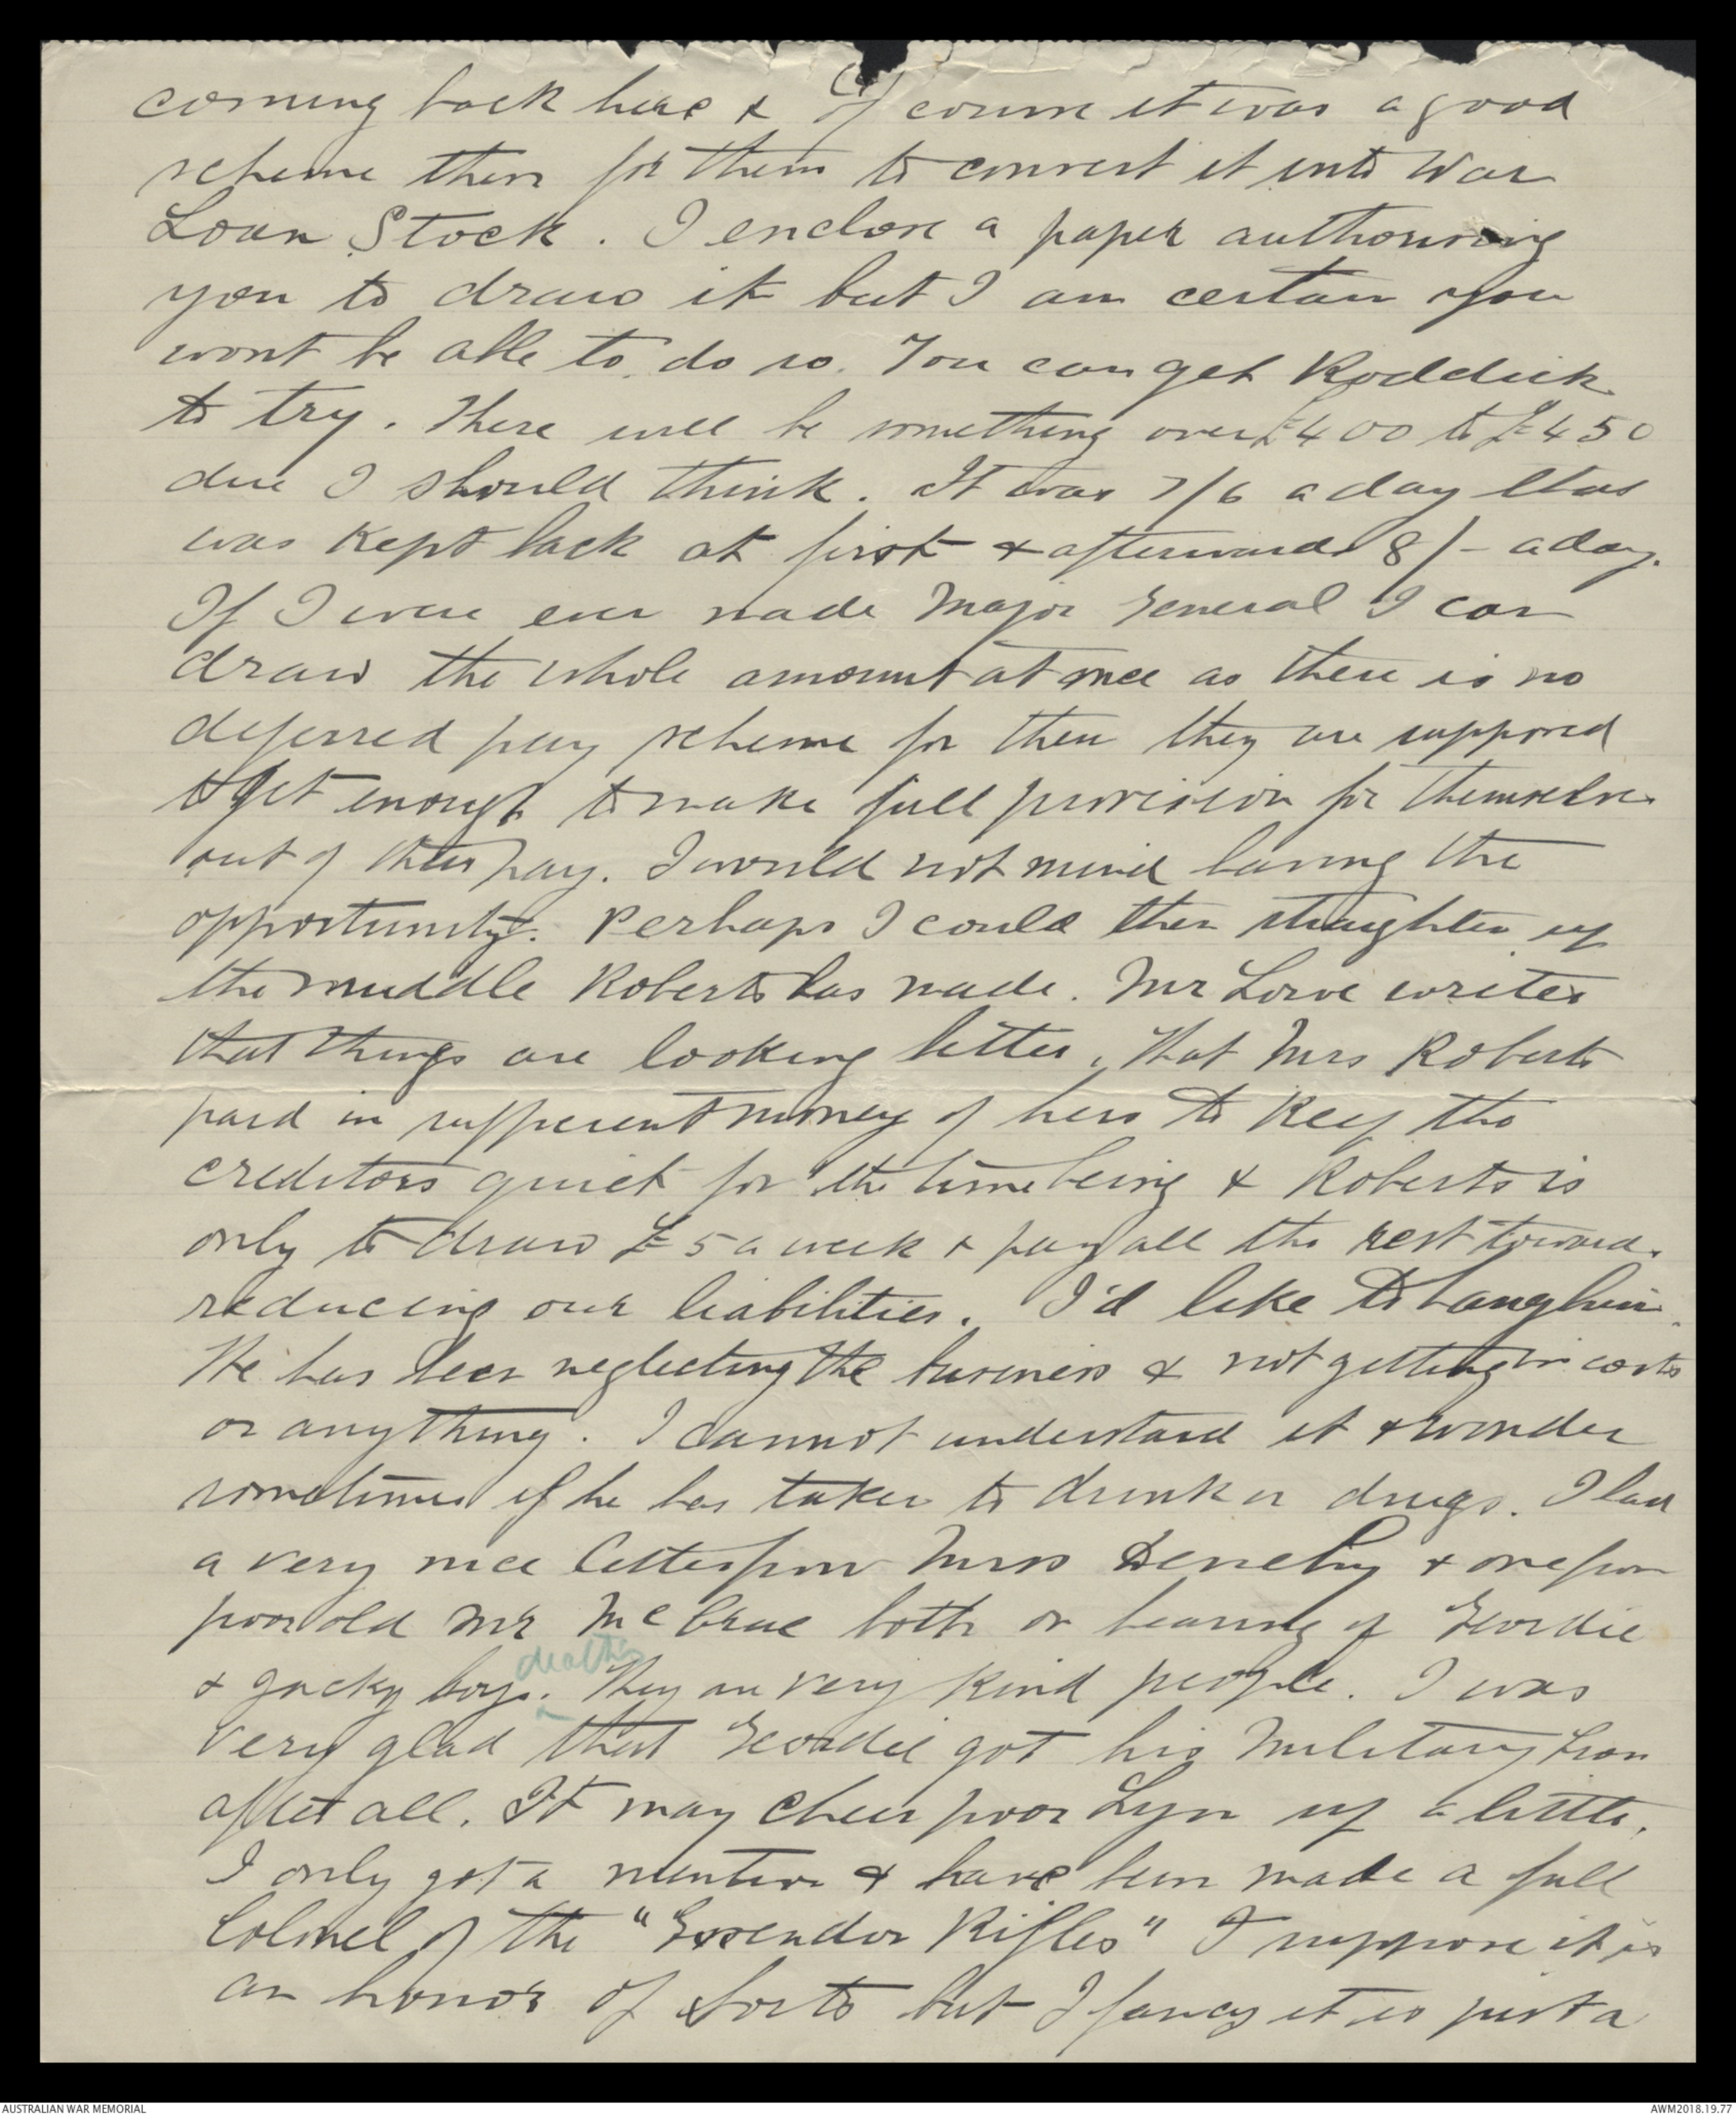 coming back here & of course it was a good
scheme then for them to convert it into War
Loan Stock. I enclose a paper authorising
you to draw it but I am certain you
wont be able to do so. You can get Roddick
to try. There will be something over £400 to £450
due I should think. It was 7/6 a day that
was kept back at first & afterwards 8/- a day.
If I were ever made Major General I can
draw the whole amount at once as there is no
deferred pay scheme for them they are supposed
to get enough to make full provision for themselves
out of their pay. I would not mind having the
opportunity. Perhaps I could then straighten up
the muddle Roberts has made. Mr Lowe writes
that things are looking better, that Mrs Roberts
paid in sufficient money of hers to keep the
creditors quiet for the time being & Roberts is
only to draw £5 a week & pay all the rest towards
reducing our liabilities. I'd like to hang him.
He has been neglecting the business & not getting in costs
or anything. I cannot understand it & wonder
sometimes if he has taken to drink or drugs. I had
a very nice letter from Miss Denehy & one from
poor old Mr McCrae both on hearing of Geordie
& Jacky boys death. They are very kind people. I was
very glad that Geordie got his Military Cross
after all. It may cheer poor Lyn up a little.
I only got a mention & have been made a full
Colonel of the "Essendon Rifles" I suppose it is
an honor of sorts but I fancy it is just a
AUSTRALIAN WAR MEMORIAL
AWM2018.19.77